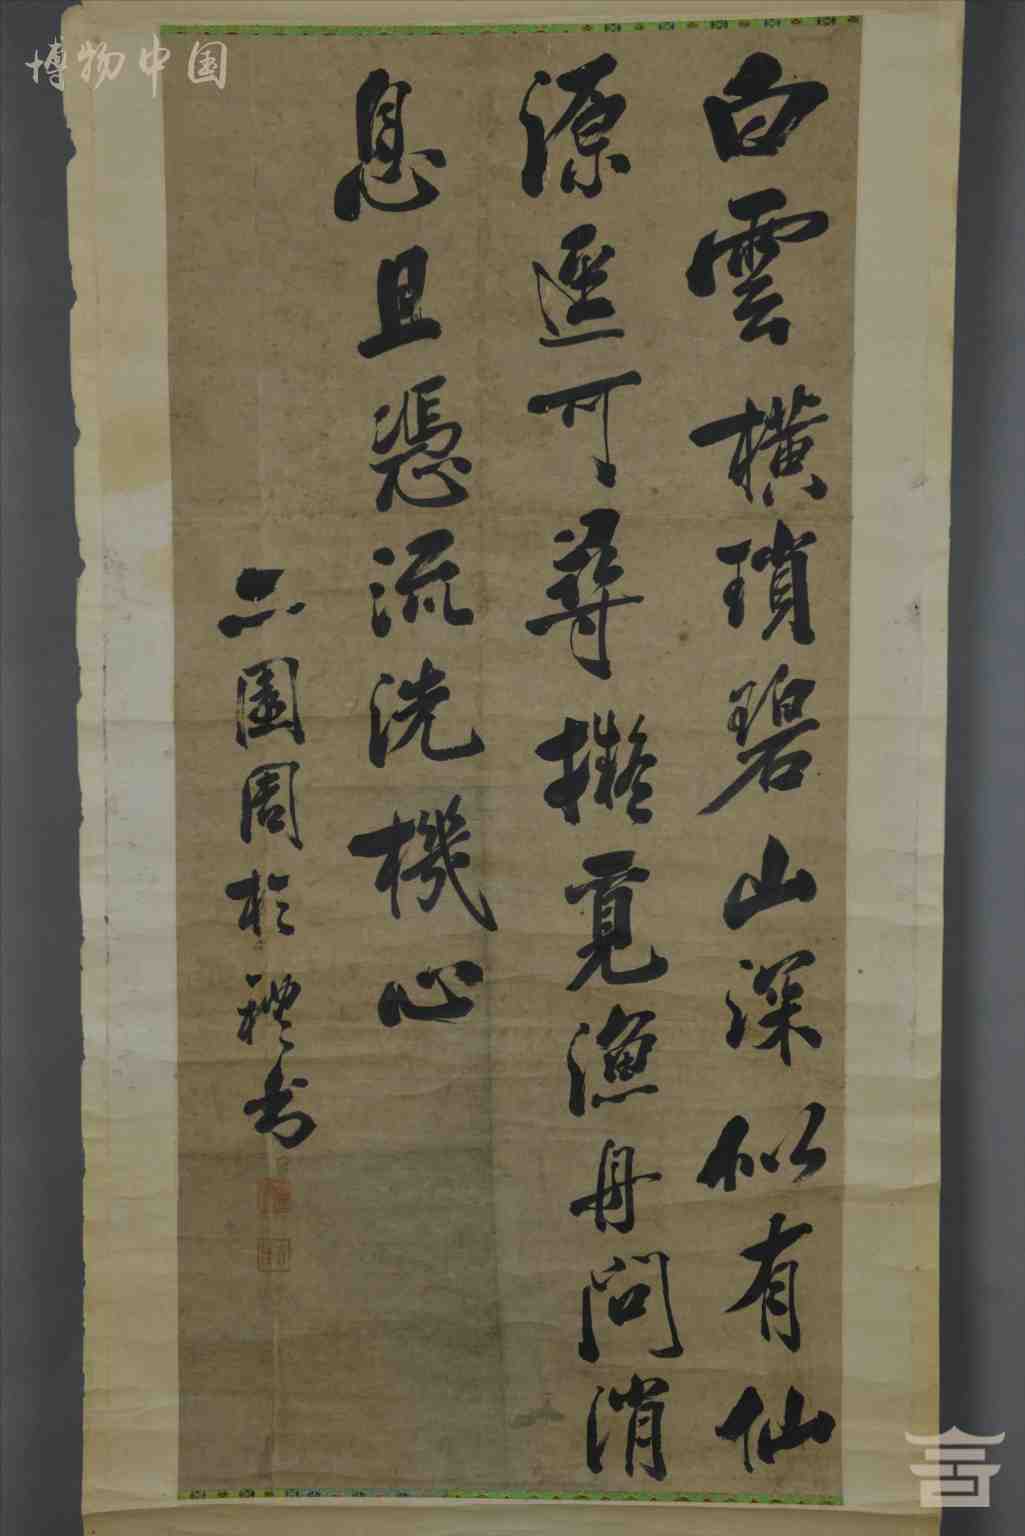 白雲橫瑣碧山深似有仙
源逕可尋擬覓漁舟問消
息且憑流洗機心
亦園周於禮書
博物中国